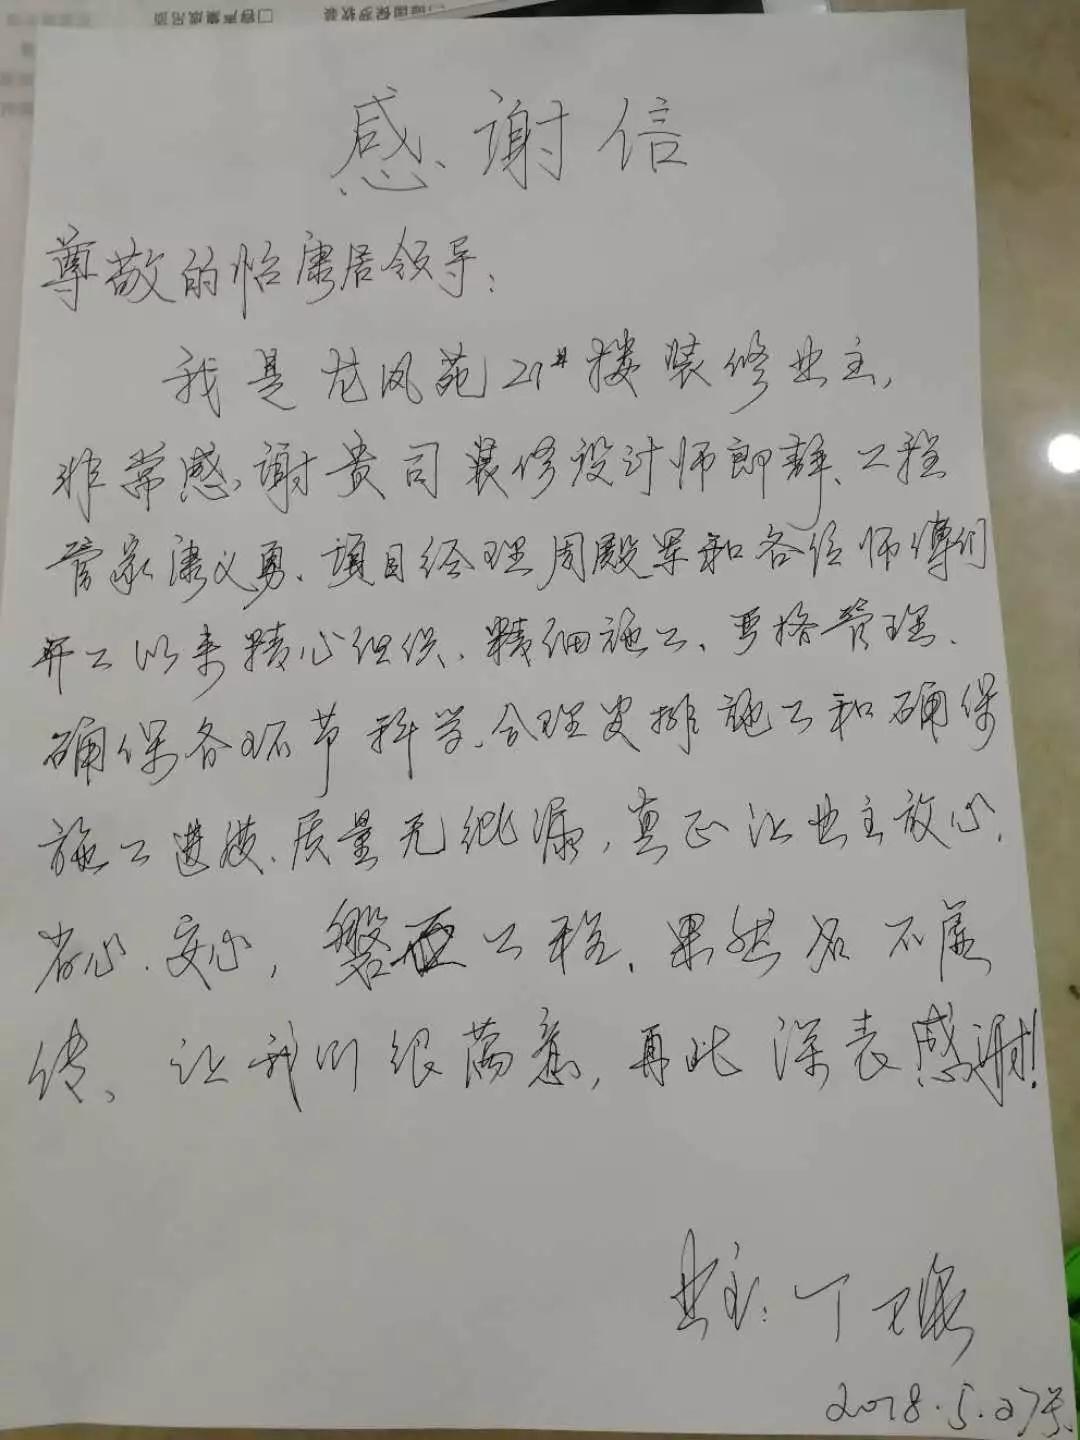 容声集成吊顶
感谢信
尊敬的怡康居领导:
我是龙凤苑21#楼装修业主,
非常感谢贵司装修设计师郎群、工程
管家潘义勇、项目经理周殿军和各位师傅们
开工以来精心组织、精细施工、严格管理、
确保各环节科学、合理安排施工和确保
施工进度、质量无纰漏,真正让业主放心、
省心、安心,磐石工程、果然名不虚
传、让我们很满意,再此深表感谢!
业主:丁卫
2018.5.27